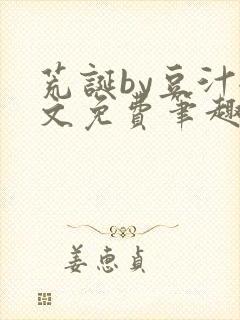 荒诞by豆汁
文免费笔趣
姜惠贞